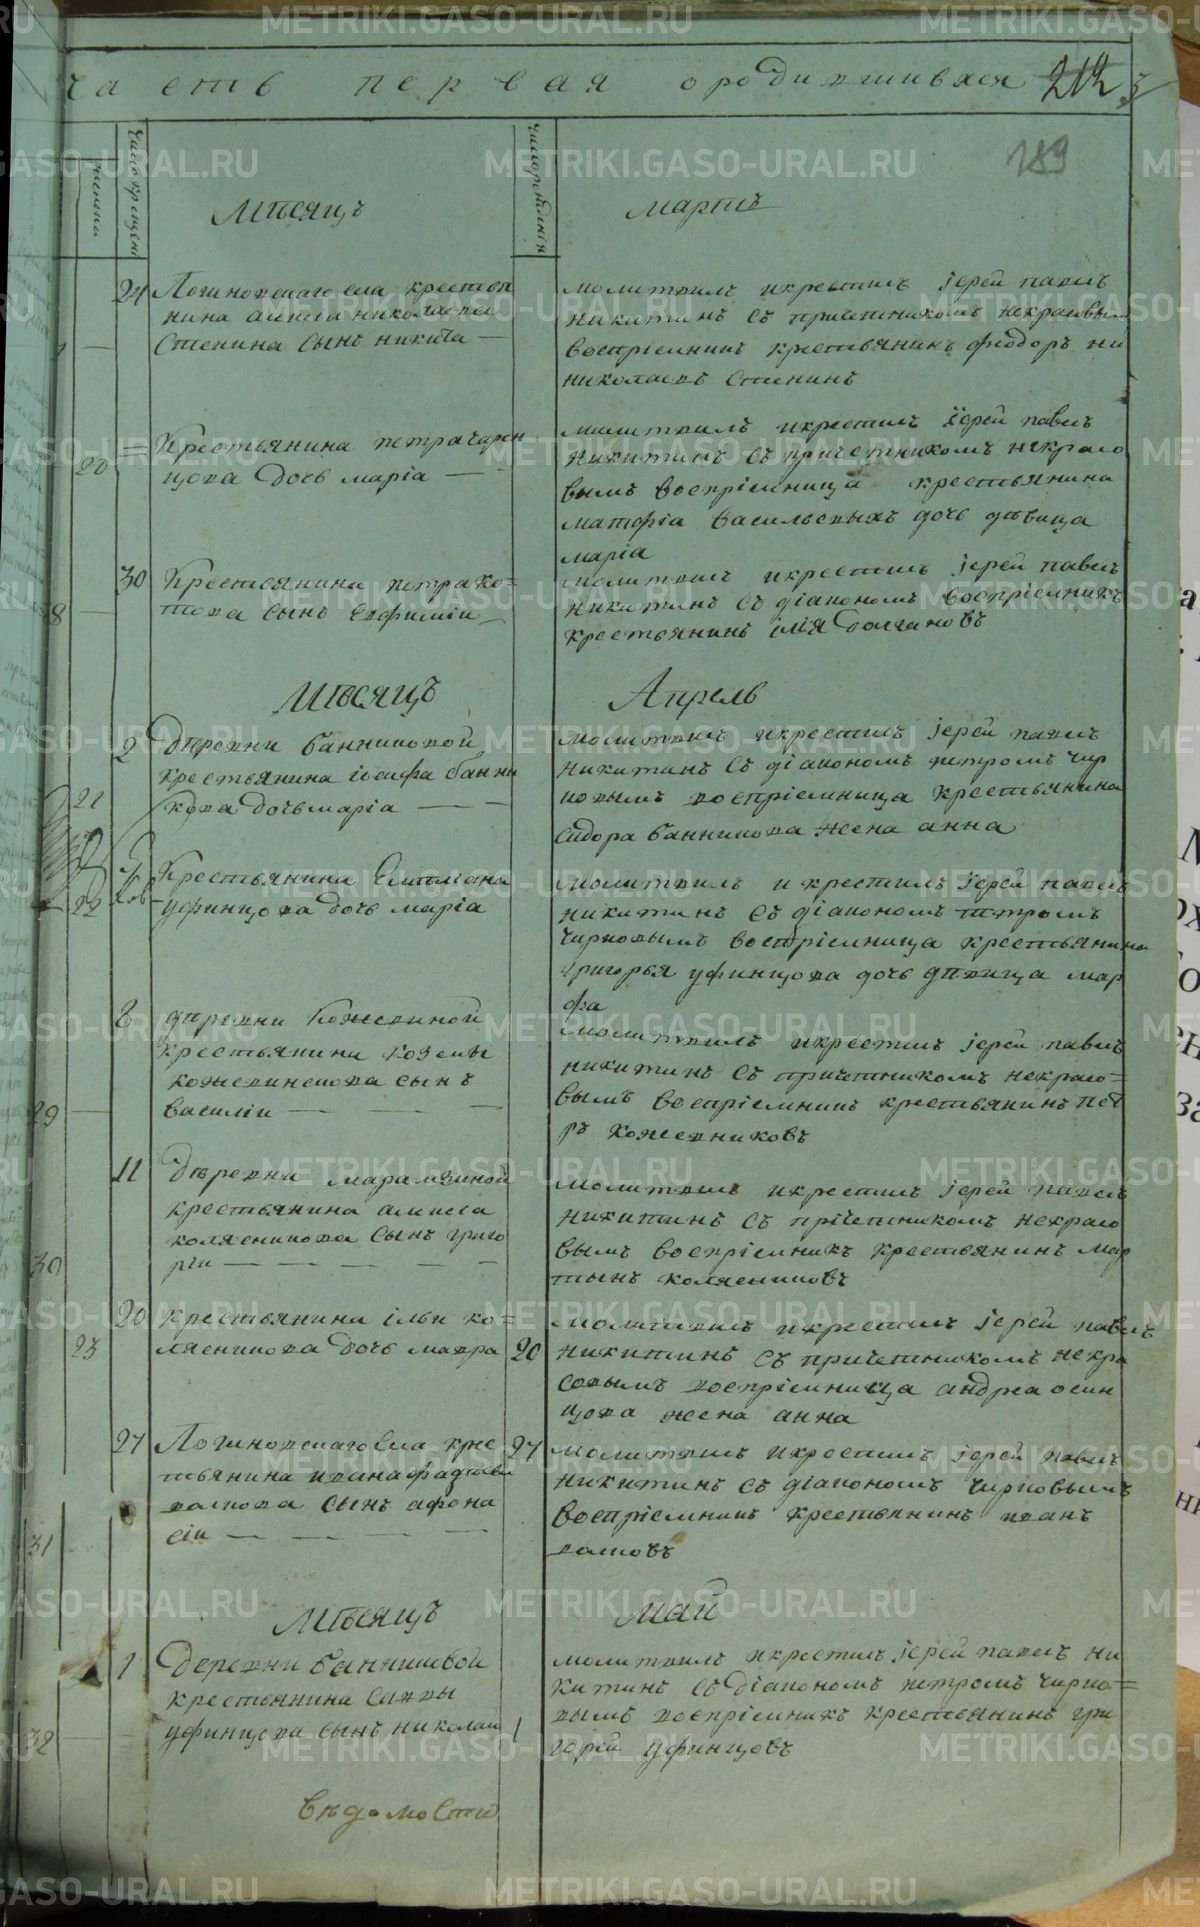 часть первая о родившихся 212
189
число крещения
число рождения
Мѣсяцъ
мартъ
24
Логиновскаго села крестья
нина
николаева
Стенина сынъ никита
молитвилъ и крестилъ іерей павелъ
никитинъ съ причетникомъ некрасовым
воспріемникъ крестьянинъ феодоръ ни
николаевъ стенинъ
20
Крестьянина петра
цова дочь маріа
молитвилъ и крестилъ іерей павелъ
никитинъ съ причетникомъ некрасо
вымъ воспріемница крестьянина
матфіа васильевыхъ дочь дѣвица
маріа
28
30
Крестьянина петра ко=
това сынъ Евфиміи
молитвилъ и крестилъ іерей павелъ
никитинъ съ діакономъ воспріемникъ
крестьянинъ іліа Долгановъ
Мѣсяцъ
Апрель
21
2
Дѣревни банниковой
крестьянина іосифа банни
кова дочь маріа
молитвилъ и крестилъ іерей павелъ
никитинъ съ діакономъ петромъ чир
ковымъ воспріемница крестьянина
сидора банникова жена анна
22
Крестьянина Емиліана
уфинцова дочь маріа
молитвилъ и крестилъ іерей павелъ
никитинъ съ діакономъ петромъ
чирковымъ воспріемница крестьянина
григорья уфинцова дочь дѣвица мар
фа
29
8
дѣревни Кожевиной
крестьянина козмы
кожевникова сынъ
василіи
молитвилъ и крестилъ іерей павелъ
никитинъ съ причетникомъ некрасо=
вымъ воспріемникъ крестьянинъ пет
ръ кожевниковъ
30
11
Дѣревни марамзиной
крестьянина алексѣа
колясникова сынъ григо
ріи
молитвилъ и крестилъ іерей павелъ
никитинъ съ причетникомъ некрасо
вымъ воспріемникъ крестьянинъ мар
тынъ колясниковъ
23
20
крестьянина ільи ко=
лясникова дочь мавра
20
молитвилъ и крестилъ іерей павелъ
никитинъ съ причетникомъ некра
совымъ воспріемница андреа осин
цова жена анна
31
27
Логиновскаго села кре
стьянина ивана
валкова сынъ афона
сіи
27
молитвилъ и крестилъ іерей павелъ
никитинъ съ діакономъ чирковымъ
воспріемникъ крестьянинъ иванъ
валковъ
Мѣсяцъ
май
32
1
Деревни банниковой
крестьянина саввы
уфинцова сынъ николаи
1
молитвилъ и крестилъ іерей павелъ ни
китинъ съ діакономъ петромъ чирко=
вымъ воспріемникъ крестьянинъ гри
горей уфинцовъ
вѣдомости
METRIKI.GASO-URAL.RU